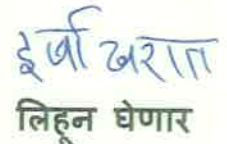 इर्जा खरात
लिहून घेणार